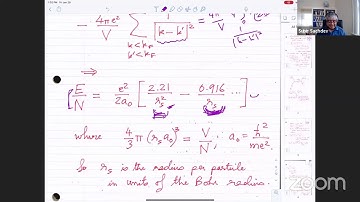 - 4πe² / V Σ 1 / |k-k'|² = 4πe² / V
k<k_F
k'<k_F
1 / |k-k'|²
⇒
E/N = e²/2a₀ [ 2.21/r_s² - 0.916/r_s ... ]
where 4/3 π (r_s a₀)³ = V/N ; a₀ = ħ²/me²
So r_s is the radius per particle
in units of the Bohr radius.
Subir Sachdev
zoom